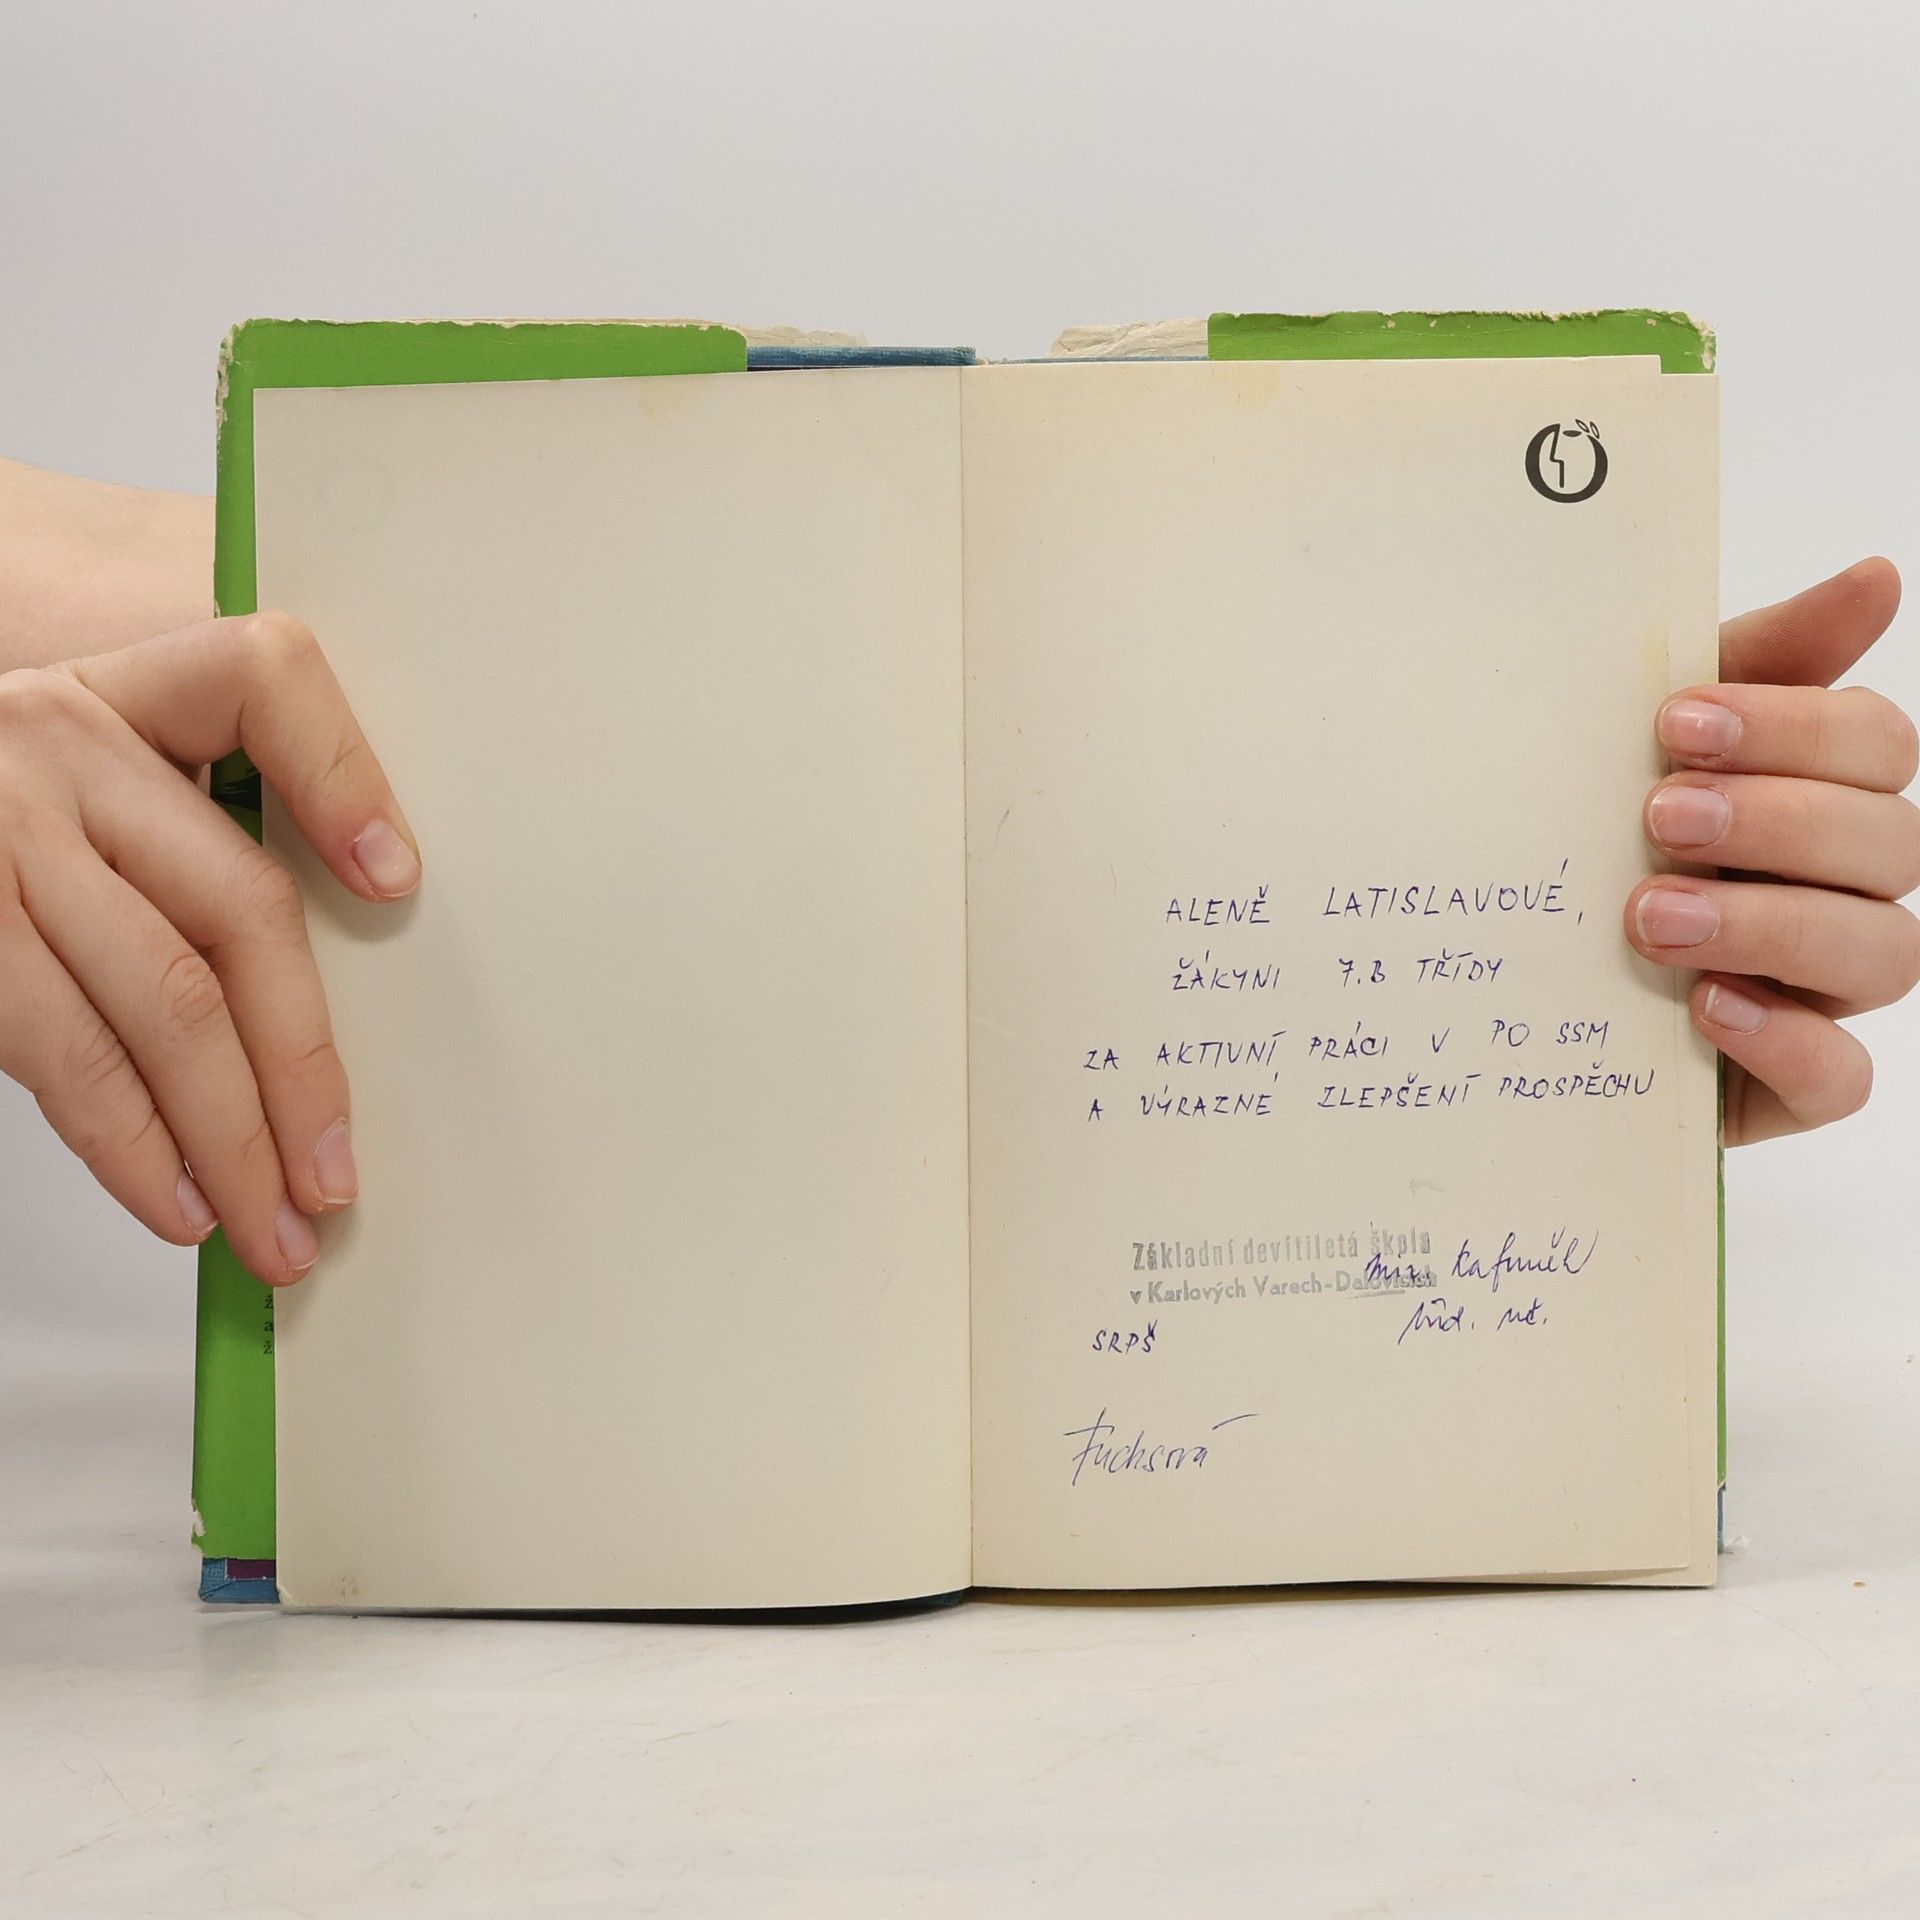 ALENĚ LATISLAVOVÉ,
ŽÁKYNI 7.B TŘÍDY
ZA AKTIVNÍ PRÁCI V PO SSM
A VÝRAZNÉ ZLEPŠENÍ PROSPĚCHU
Základní devítiletá škola
v Karlových Varech-Dalovicích
SRPŠ
Fuchsová